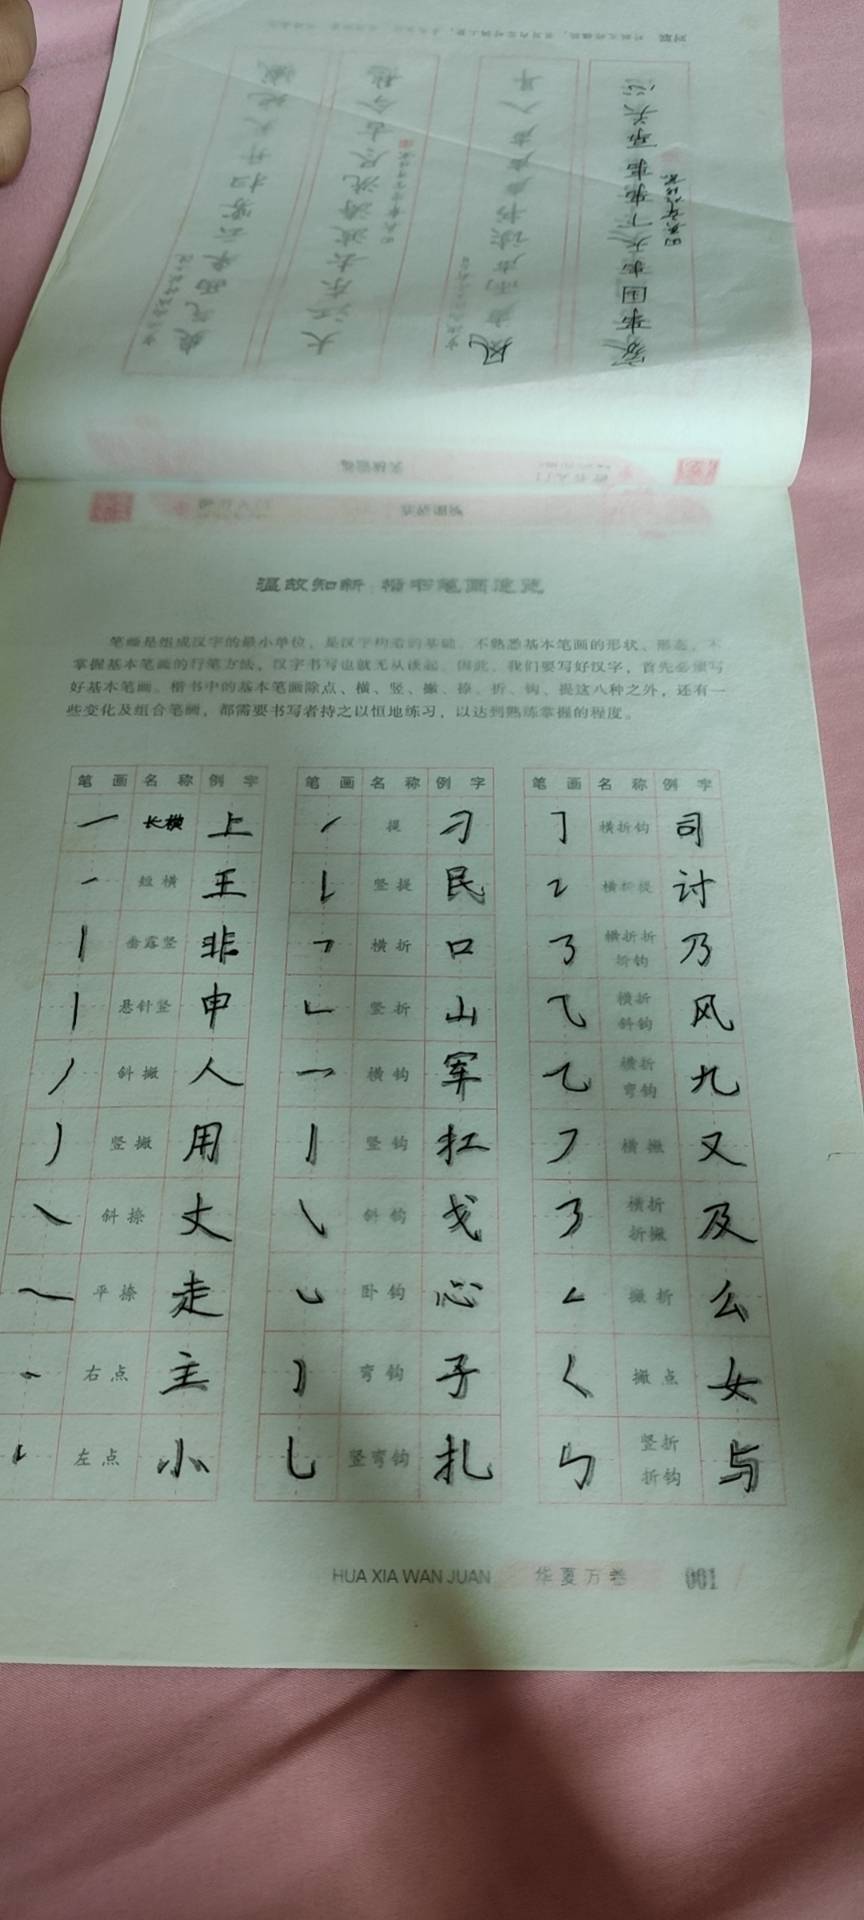 温故知新 楷书笔画速览
笔画是组成汉字的最小单位，是汉字构造的基础。不熟悉基本笔画的形状、形态，不
掌握基本笔画的行笔方法，汉字书写也就无从谈起。因此，我们要写好汉字，首先必须写
好基本笔画。楷书中的基本笔画除点、横、竖、撇、捺、折、钩、提这八种之外，还有一
些变化及组合笔画，都需要书写者持之以恒地练习，以达到熟练掌握的程度。
笔画 名称 例字 笔画 名称 例字 笔画 名称 例字
长横 上 提 刁 横折钩 司
短横 王 竖提 民 横折提 讨
垂露竖 非 横折 口 横折折折钩 乃
悬针竖 申 竖折 山 横折斜钩 风
斜撇 人 横钩 军 横折弯钩 九
竖撇 用 竖钩 扛 横撇 又
斜捺 丈 斜钩 戈 横折折撇 及
平捺 走 卧钩 心 撇折 么
右点 主 弯钩 子 撇点 女
左点 小 竖弯钩 扎 竖折折钩 与
HUA XIA WAN JUAN 华夏万卷 001
家事国事天下事事事关心
风声雨声读书声声声入耳
大江东去浪淘尽